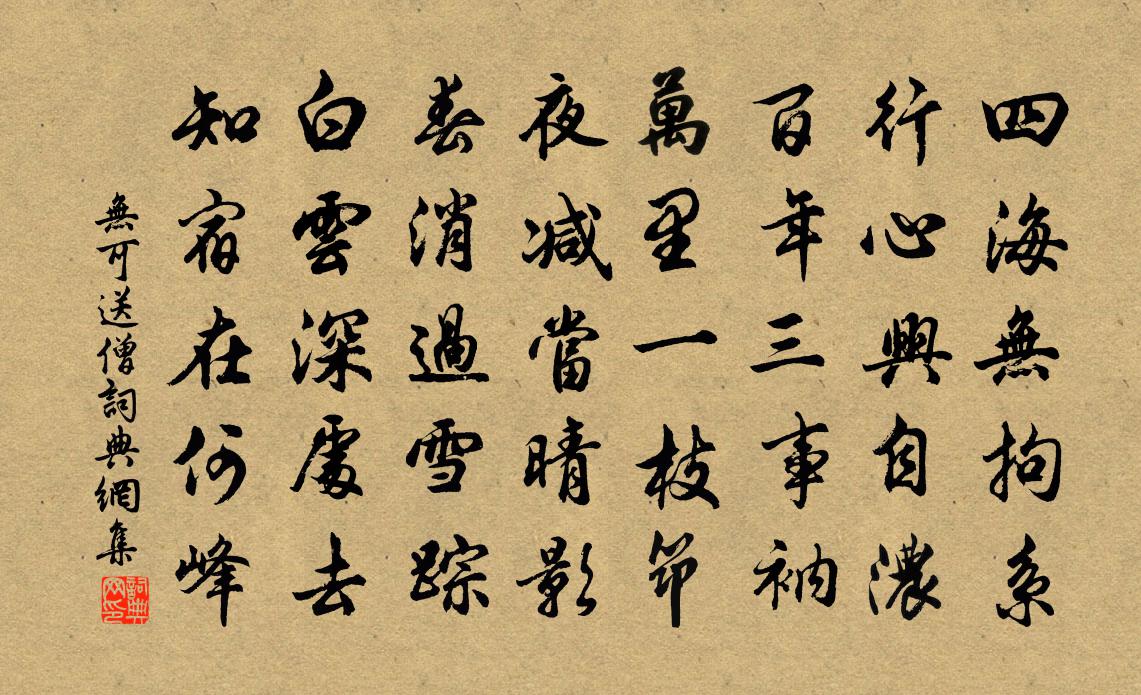 四海無拘系
行心興自濃
百年三事衲
萬里一枝筇
夜減當晴影
春消過雪踪
白雲深處去
知宿在何峰
無可送僧詞典網集
詞典网印